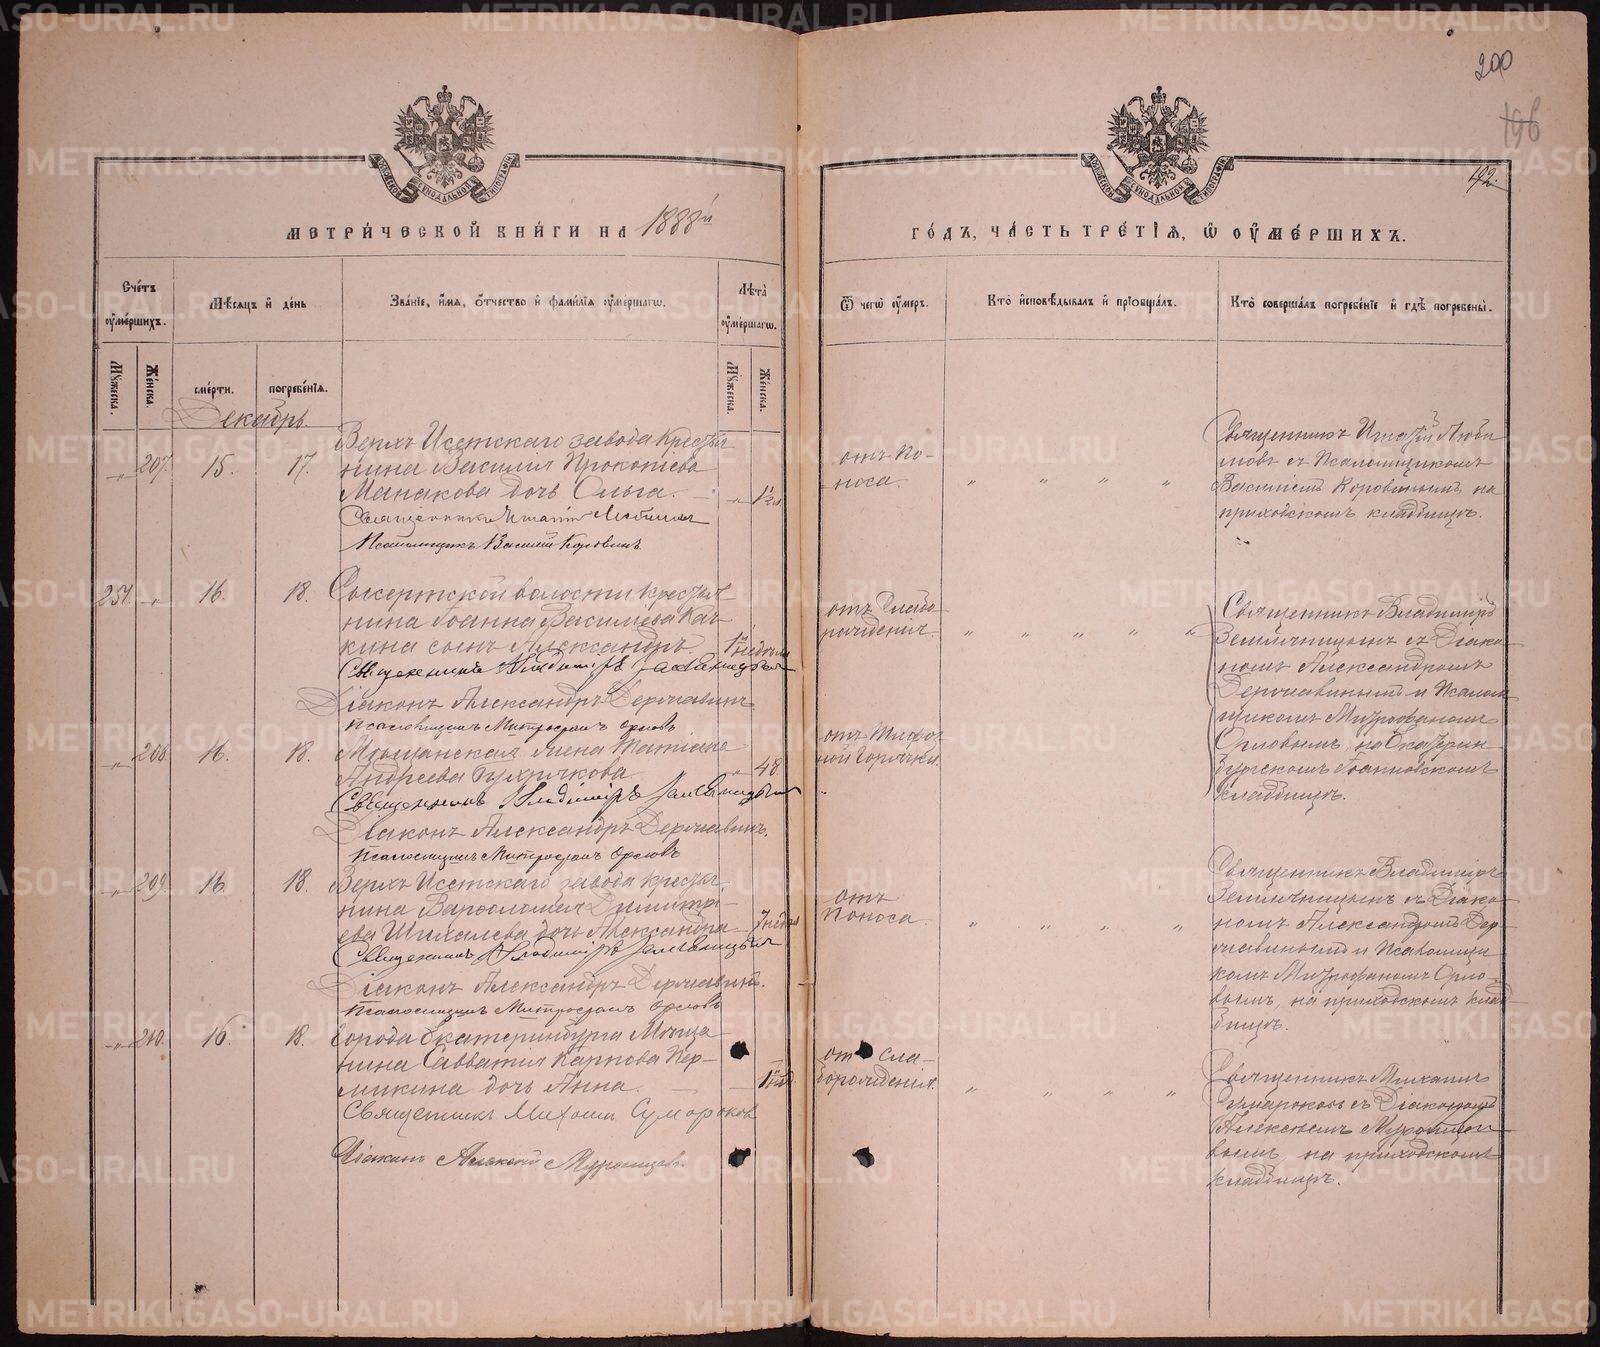 200
196
192.
МЕТРИ́ЧЕСКОЙ КНИ́ГИ НА 1888й
ГО́ДЪ, ЧА́СТЬ ТРЕ́ТІЯ, Ѿ ОУМЕ́РШИХЪ.
Сче́тъ оуме́ршихъ.
Мѣсяцъ и де́нь
Зва́ніе, и́мя, о́тчество и фами́лія оуме́ршагѡ.
Лѣта̀ оуме́ршагѡ.
Ѿ чегѡ̀ оу́меръ.
Кто̀ исповѣ́дывалъ и пріобща́лъ.
Кто̀ соверша́лъ погребе́ніе и гдѣ̀ погребены̀.
Мꙋ́жеска.
Же́нска.
сме́рти.
погребе́нія.
Мꙋ́жеска.
Же́нска.
Декабрь.
Верхъ Исетскаго завода Крестья
„ 207. 15. 17. нина Василія Прокопіева
Манакова дочь Ольга. „ 1½
Священникъ Игнатій Любимовъ
Псаломщикъ Василій Коровинъ
отъ по-
носа. „ „ „ „
Священникъ Игнатій Люби
мовъ съ Псаломщикомъ
Василіемъ Коровинымъ, на
приходскомъ кладбищѣ.
251. „ 16. 18. Сысертской волости крестья
нина Іоанна Василіева
кина сынъ Александръ.
Священникъ Владиміръ
Діаконъ Александръ Державинъ
Псаломщикъ Митрофанъ Орловъ
отъ слабо
рожденія. „ „ „ „ „
Священникъ Владиміръ
Земляницынъ съ Діако
номъ Александромъ
Державинымъ и Псалом
щикомъ Митрофаномъ
Орловымъ, на Екатерин
бургскомъ Іоанновскомъ
кладбищѣ.
„ 208. 16. 18. Мѣщанская жена Татіана
Андреева „ 48.
Священникъ Владиміръ
Діаконъ Александръ Державинъ.
Псаломщикъ Митрофанъ Орловъ
отъ Тифоз
ной Горячки.
„ 209. 16. 18. Верхъ Исетскаго завода крестья
нина Варѳоломея Димитрі-
ева Шихалева дочь Александра 7 недѣл
Священникъ Владиміръ
Діаконъ Александръ Державинъ.
Псаломщикъ Митрофанъ Орловъ
отъ
поноса „ „ „ „
Священникъ Владиміръ
Земляницынъ съ Діако
номъ Александромъ Дер
жавинымъ и Псаломщи
комъ Митрофаномъ Орло-
вымъ, на приходскомъ клад
бищѣ.
„ 210. 16. 18. Города Екатеринбурга Мѣща
нина Савватія Карпова Пер-
микина дочь Анна.
Священникъ Михаилъ Сумороковъ
Діаконъ Алексій Муромцовъ.
отъ сла-
борожденія. „ „ „ „
Священникъ Михаилъ
Сумароковъ съ Діакономъ
Алексѣемъ Муромцо
вымъ, на приходскомъ
кладбищѣ.